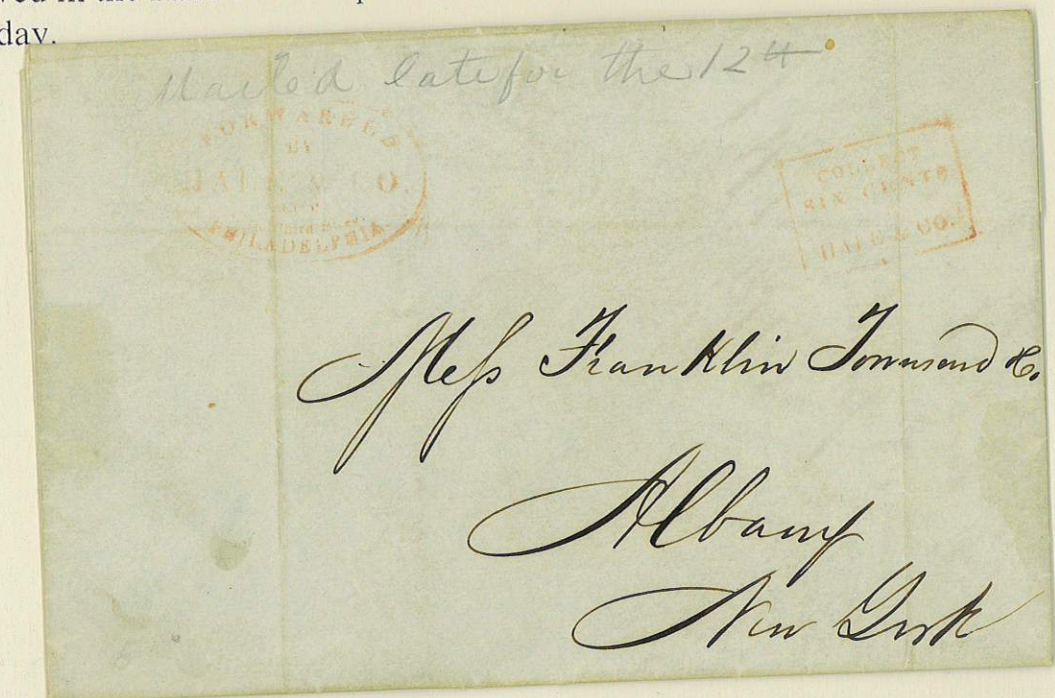 in the
day.
Mailed late for the 12th
FORWARDED
BY
HALE & CO.
PHILADELPHIA
COLLECT
SIX CENTS
HALE & CO.
Mess Franklin Townsend & Co
Albany
New York